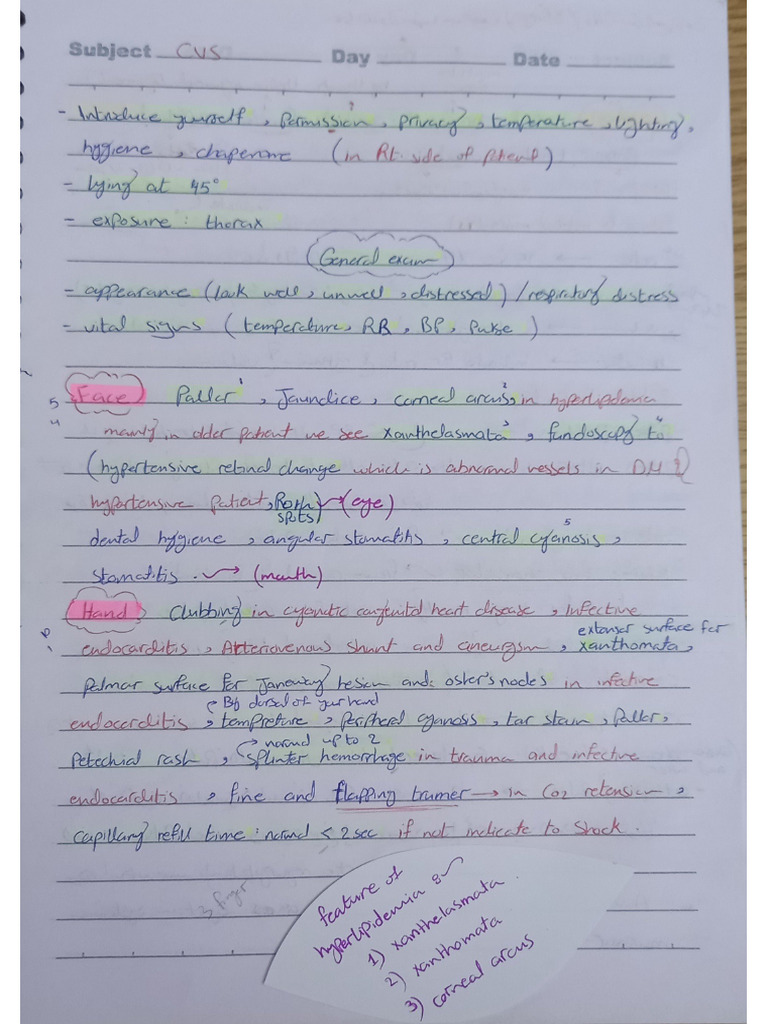 Subject CVS Day Date
- Introduce yourself, Permission, Privacy, temperature, lighting,
hygiene, chaperone (in Rt. side of Patient)
- lying at 45°
- exposure: thorax
General exam
- appearance (look well, unwell, distressed) / respiratory distress
- vital signs (temperature, RR, BP, Pulse)
Face Pallor 1, Jaundice, corneal arcus 2, in hyperlipidemia
mainly in older patient we see xanthelasmata 3, fundoscopy 4 to
(hypertensive retinal change which is abnormal vessels in DM &
hypertensive patient, Roth spots) → (eye)
dental hygiene, angular stomatitis, central cyanosis 5,
stomatitis. → (mouth)
Hand Clubbing in cyanotic congenital heart disease, Infective
endocarditis, Arteriovenous shunt and aneurysm, extenser surface for xanthomata,
Palmar surface for Janeway lesion and osler's nodes in infective
By dorsal of your hand
endocarditis, tempreture, peripheral cyanosis, tar stain, Pallor,
normal up to 2
Petechial rash, splinter hemorrhage in trauma and infective
endocarditis, fine and flapping tremer → in Co2 retension,
Capillary refill time: normal < 2 sec if not indicate to Shock.
3 finger
feature of
hyperlipidemia
1) xanthelasmata
2) xanthomata
3) corneal arcus